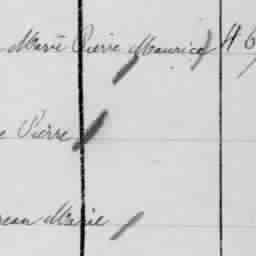 Marie Pierre Maurice 46
Pierre
Jean Marie